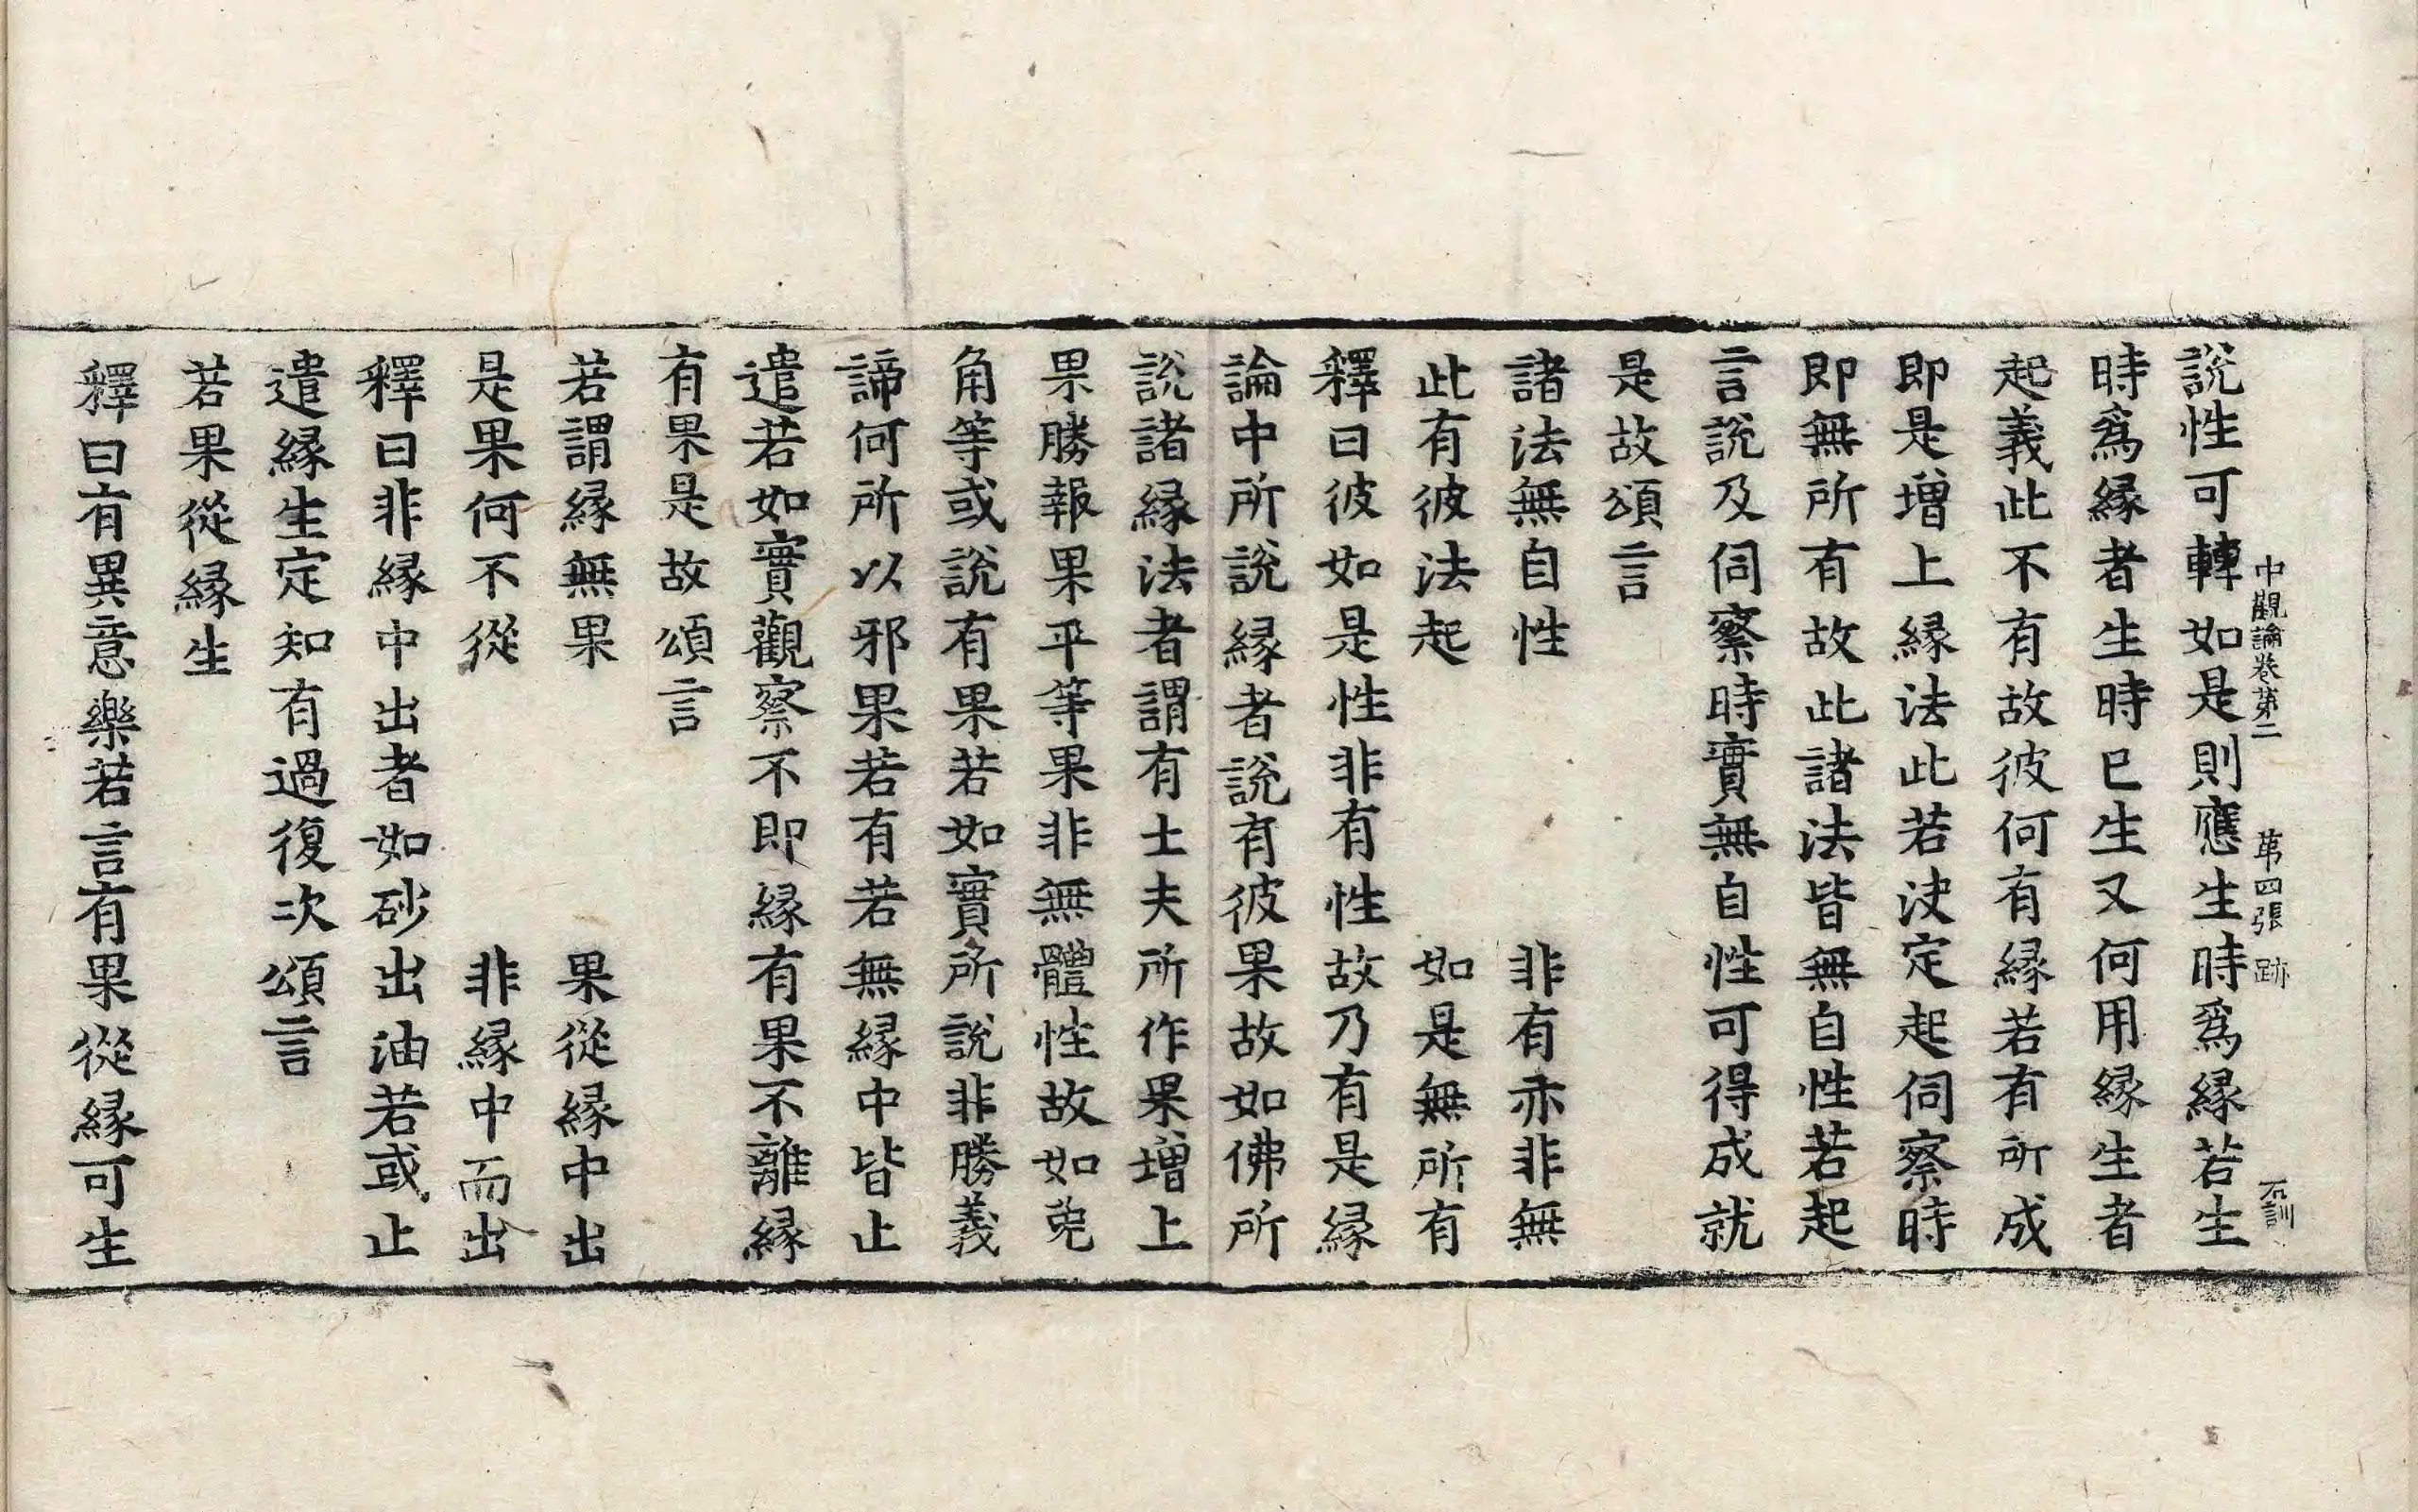 中觀論卷第二　第四張　跡　石訓
說性可轉如是則應生時爲緣若生
時爲緣者生時已生又何用緣生者
起義此不有故彼何有緣若有所成
即是增上緣法此若決定起伺察時
即無所有故此諸法皆無自性若起
言說及伺察時實無自性可得成就
是故頌言
諸法無自性　非有亦非無
此有彼法起　如是無所有
釋曰彼如是性非有性故乃有是緣
論中所說緣者說有彼果故如佛所
說諸緣法者謂有士夫所作果增上
果勝報果平等果非無體性故如兎
角等或說有果若如實所說非勝義
諦何所以邪果若有若無緣中皆止
遣若如實觀察不即緣有果不離緣
有果是故頌言
若謂緣無果　果從緣中出
是果何不從　非緣中而出
釋曰非緣中出者如砂出油若或止
遣緣生定知有過復次頌言
若果從緣生
釋曰有異意樂若言有果從緣可生